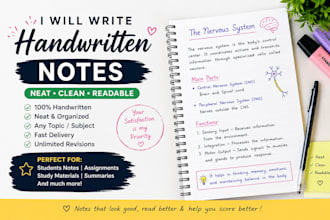 I WILL WRITE
Handwritten
NOTES
NEAT • CLEAN • READABLE
100% Handwritten
Neat & Organized
Any Topic / Subject
Fast Delivery
Unlimited Revisions
Your
Satisfaction
is my
Priority
PERFECT FOR:
Students Notes | Assignments
Study Materials | Summaries
And much more!
The Nervous System
The nervous system is the body's control
center. It coordinates actions and transmits
signals through specialized cells called
neurons.
Main Parts:
Central Nervous System (CNS)
Brain and Spinal Cord
Peripheral Nervous System (PNS)
Nerves outside the CNS
Functions:
1. Sensory Input - Receives information
from the environment.
2. Integration - Processes the information
3. Motor Output - Sends signals to muscles
and glands to produce response.
It helps in thinking, memory, emotions,
and maintaining balance in the body.
Neat
Clean
Readable
Notes that look good, read better & help you score better!